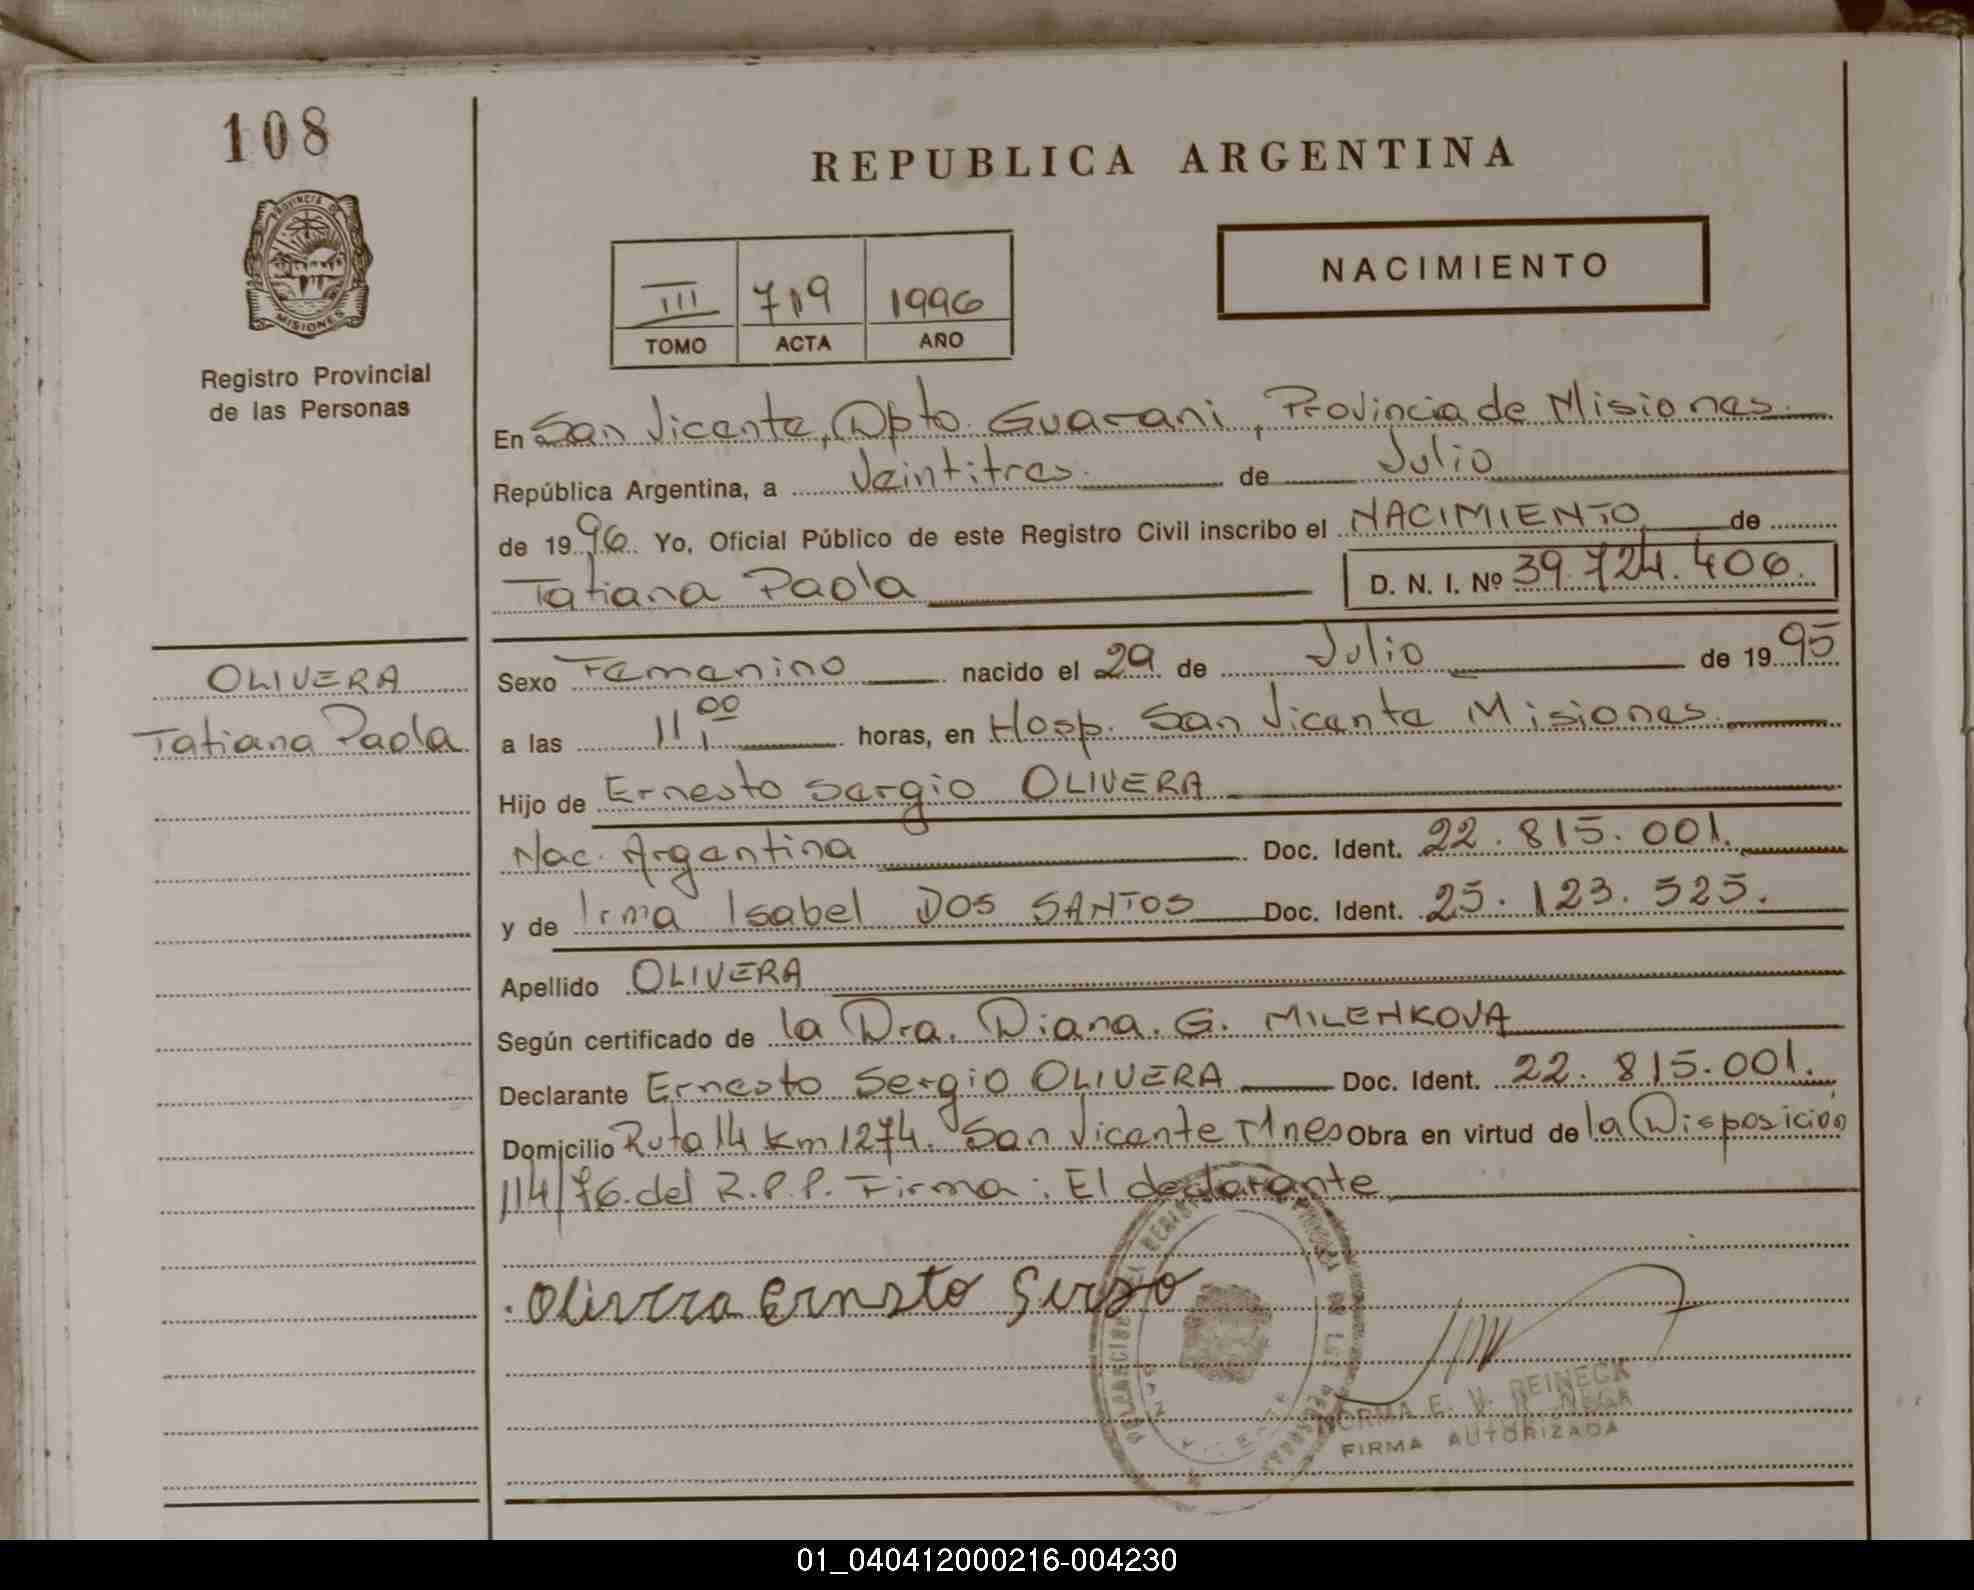 108
PROVINCIA DE
MISIONES
Registro Provincial
de las Personas
REPUBLICA ARGENTINA
NACIMIENTO
III 719 1996
TOMO ACTA AÑO
En San Vicente, Dpto. Guarani, Provincia de Misiones.
República Argentina, a Veintitres. de Julio
de 1996 Yo, Oficial Público de este Registro Civil inscribo el NACIMIENTO de
Tatiana Paola D. N. I. Nº 39.724.406.
OLIVERA
Tatiana Paola
Sexo Femenino nacido el 29 de Julio de 1995
a las 11,00 horas, en Hosp. San Vicente Misiones.
Hijo de Ernesto Sergio OLIVERA
Nac. Argentina Doc. Ident. 22.815.001.
y de Irma Isabel DOS SANTOS Doc. Ident. 25.123.525.
Apellido OLIVERA
Según certificado de la Dra. Diana. G. MILENKOVA
Declarante Ernesto Sergio OLIVERA Doc. Ident. 22.815.001.
Domicilio Ruta 14 Km 1274. San Vicente Mnes Obra en virtud de la Disposición
114/76 del R.P.P. Firma: El declarante
Olivera Ernsto Serzo
NORMA E. V. REINECK
FIRMA AUTORIZADA
01_040412000216-004230